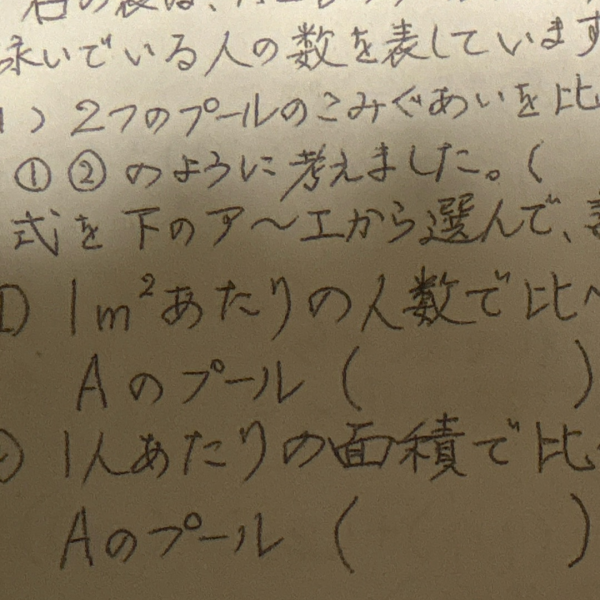 右の表は、
泳いでいる人の数を表しています
1) 2つのプールのこみぐあいを比
①②のように考えました。(
式を下のア〜エから選んで、
① 1m²あたりの人数で比べ
Aのプール ( )
1人あたりの面積で比
Aのプール ( )